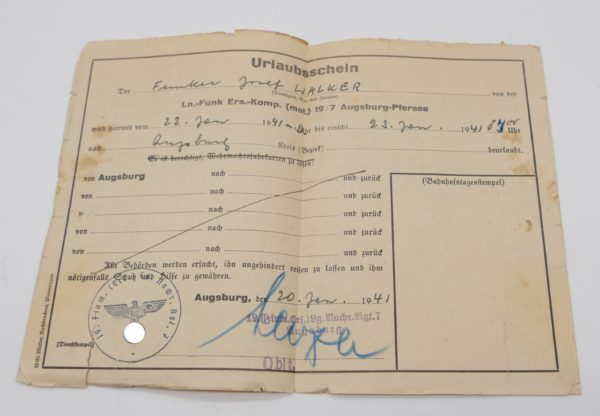 Urlaubsschein
Der Funker Josef WALKER von der
(Dienstgrad, Vor- und Zuname)
Ln.-Funk Ers.-Komp. (mot.) 19/7 Augsburg-Pfersee
wird hiermit vom 22. Jan. 1941 bis einschl. 23. Jan. 1941 Uhr
nach Augsburg Kreis (Bezirk) beurlaubt.
Er ist berechtigt, Wehrmachtsfahrkarten zu lösen:
von Augsburg nach und zurück (Bahnhofstagesstempel)
von nach und zurück
von nach und zurück
von nach und zurück
von nach und zurück
Alle Behörden werden ersucht, ihn ungehindert reisen zu lassen und ihm
nötigenfalls Schutz und Hilfe zu gewähren.
Augsburg, den 20. Jan. 1941
Augsburg
(Dienststempel)
Oblt.